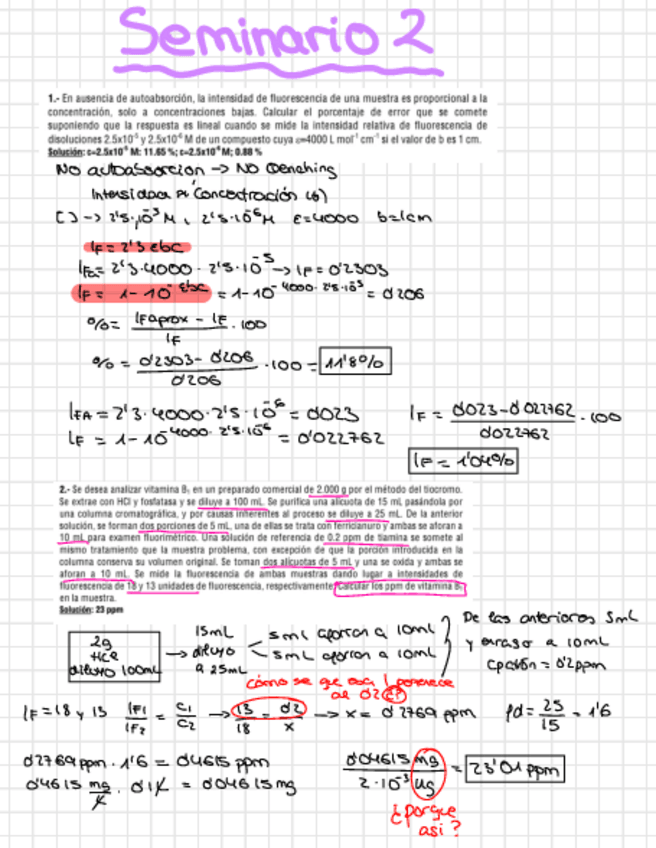 Seminario 2
1.- En ausencia de autoabsorción, la intensidad de fluorescencia de una muestra es proporcional a la
concentración, solo a concentraciones bajas. Calcular el porcentaje de error que se comete
suponiendo que la respuesta es lineal cuando se mide la intensidad relativa de fluorescencia de
disoluciones 2.5x10⁻⁵ y 2.5x10⁻⁶ M de un compuesto cuya ε=4000 L mol⁻¹ cm⁻¹ si el valor de b es 1 cm.
Solución: c=2.5x10⁻⁵ M: 11.65 %; c=2.5x10⁻⁶ M; 0.88 %
No autoabsorcion → NO Quenching
Intensidad α Concentración (b)
[ ] → 2'5·10⁻⁵M, 2'5·10⁻⁶M ε=4000 b=1cm
IF = 2'3 εbc
2'3·4000·2'5·10⁻⁵ → IF = 0'2303
IF = 1-10^-εbc = 1-10^-4000·2'5·10⁻⁵ = 0'206
% = IFaprox - IF / IF · 100
% = 0'2303-0'206 / 0'206 · 100 = 11'8%
IFA = 2'3·4000·2'5·10⁻⁶ = 0'023
IF = 1-10^-4000·2'5·10⁻⁶ = 0'022762
IF = 0'023-0'022762 / 0'022762 · 100
IF = 1'04%
2.- Se desea analizar vitamina B₁ en un preparado comercial de 2.000 g por el método del tiocromo.
Se extrae con HCl y fosfatasa y se diluye a 100 mL. Se purifica una alícuota de 15 mL pasándola por
una columna cromatográfica, y por causas inherentes al proceso se diluye a 25 mL. De la anterior
solución, se forman dos porciones de 5 mL, una de ellas se trata con ferricianuro y ambas se aforan a
10 mL para examen fluorimétrico. Una solución de referencia de 0.2 ppm de tiamina se somete al
mismo tratamiento que la muestra problema, con excepción de que la porción introducida en la
columna conserva su volumen original. Se toman dos alícuotas de 5 mL y una se oxida y ambas se
aforan a 10 mL. Se mide la fluorescencia de ambas muestras dando lugar a intensidades de
fluorescencia de 18 y 13 unidades de fluorescencia, respectivamente. Calcular los ppm de vitamina B₁
en la muestra.
Solución: 23 ppm
2g
HCl
diluyo 100mL
→
15mL
diluyo
a 25mL
5mL aforon a 10ml
5mL aforon a 10ml
De las anteriores 5mL
y enraso a 10mL
Cpatrón = 0'2ppm
cómo se que esa I pertenece
al 0'2 C?
IF = 18 y 13 IF1/IF2 = C1/C2 → 13/18 = 0'2/x → x = 0'2769 ppm fd = 25/15 = 1'6
0'2769 ppm · 1'6 = 0'4615 ppm
0'4615 mg/L · 0'1L = 0'04615 mg
0'04615 mg / 2·10⁻³ ug = 23'01 ppm
¿porque
asi?